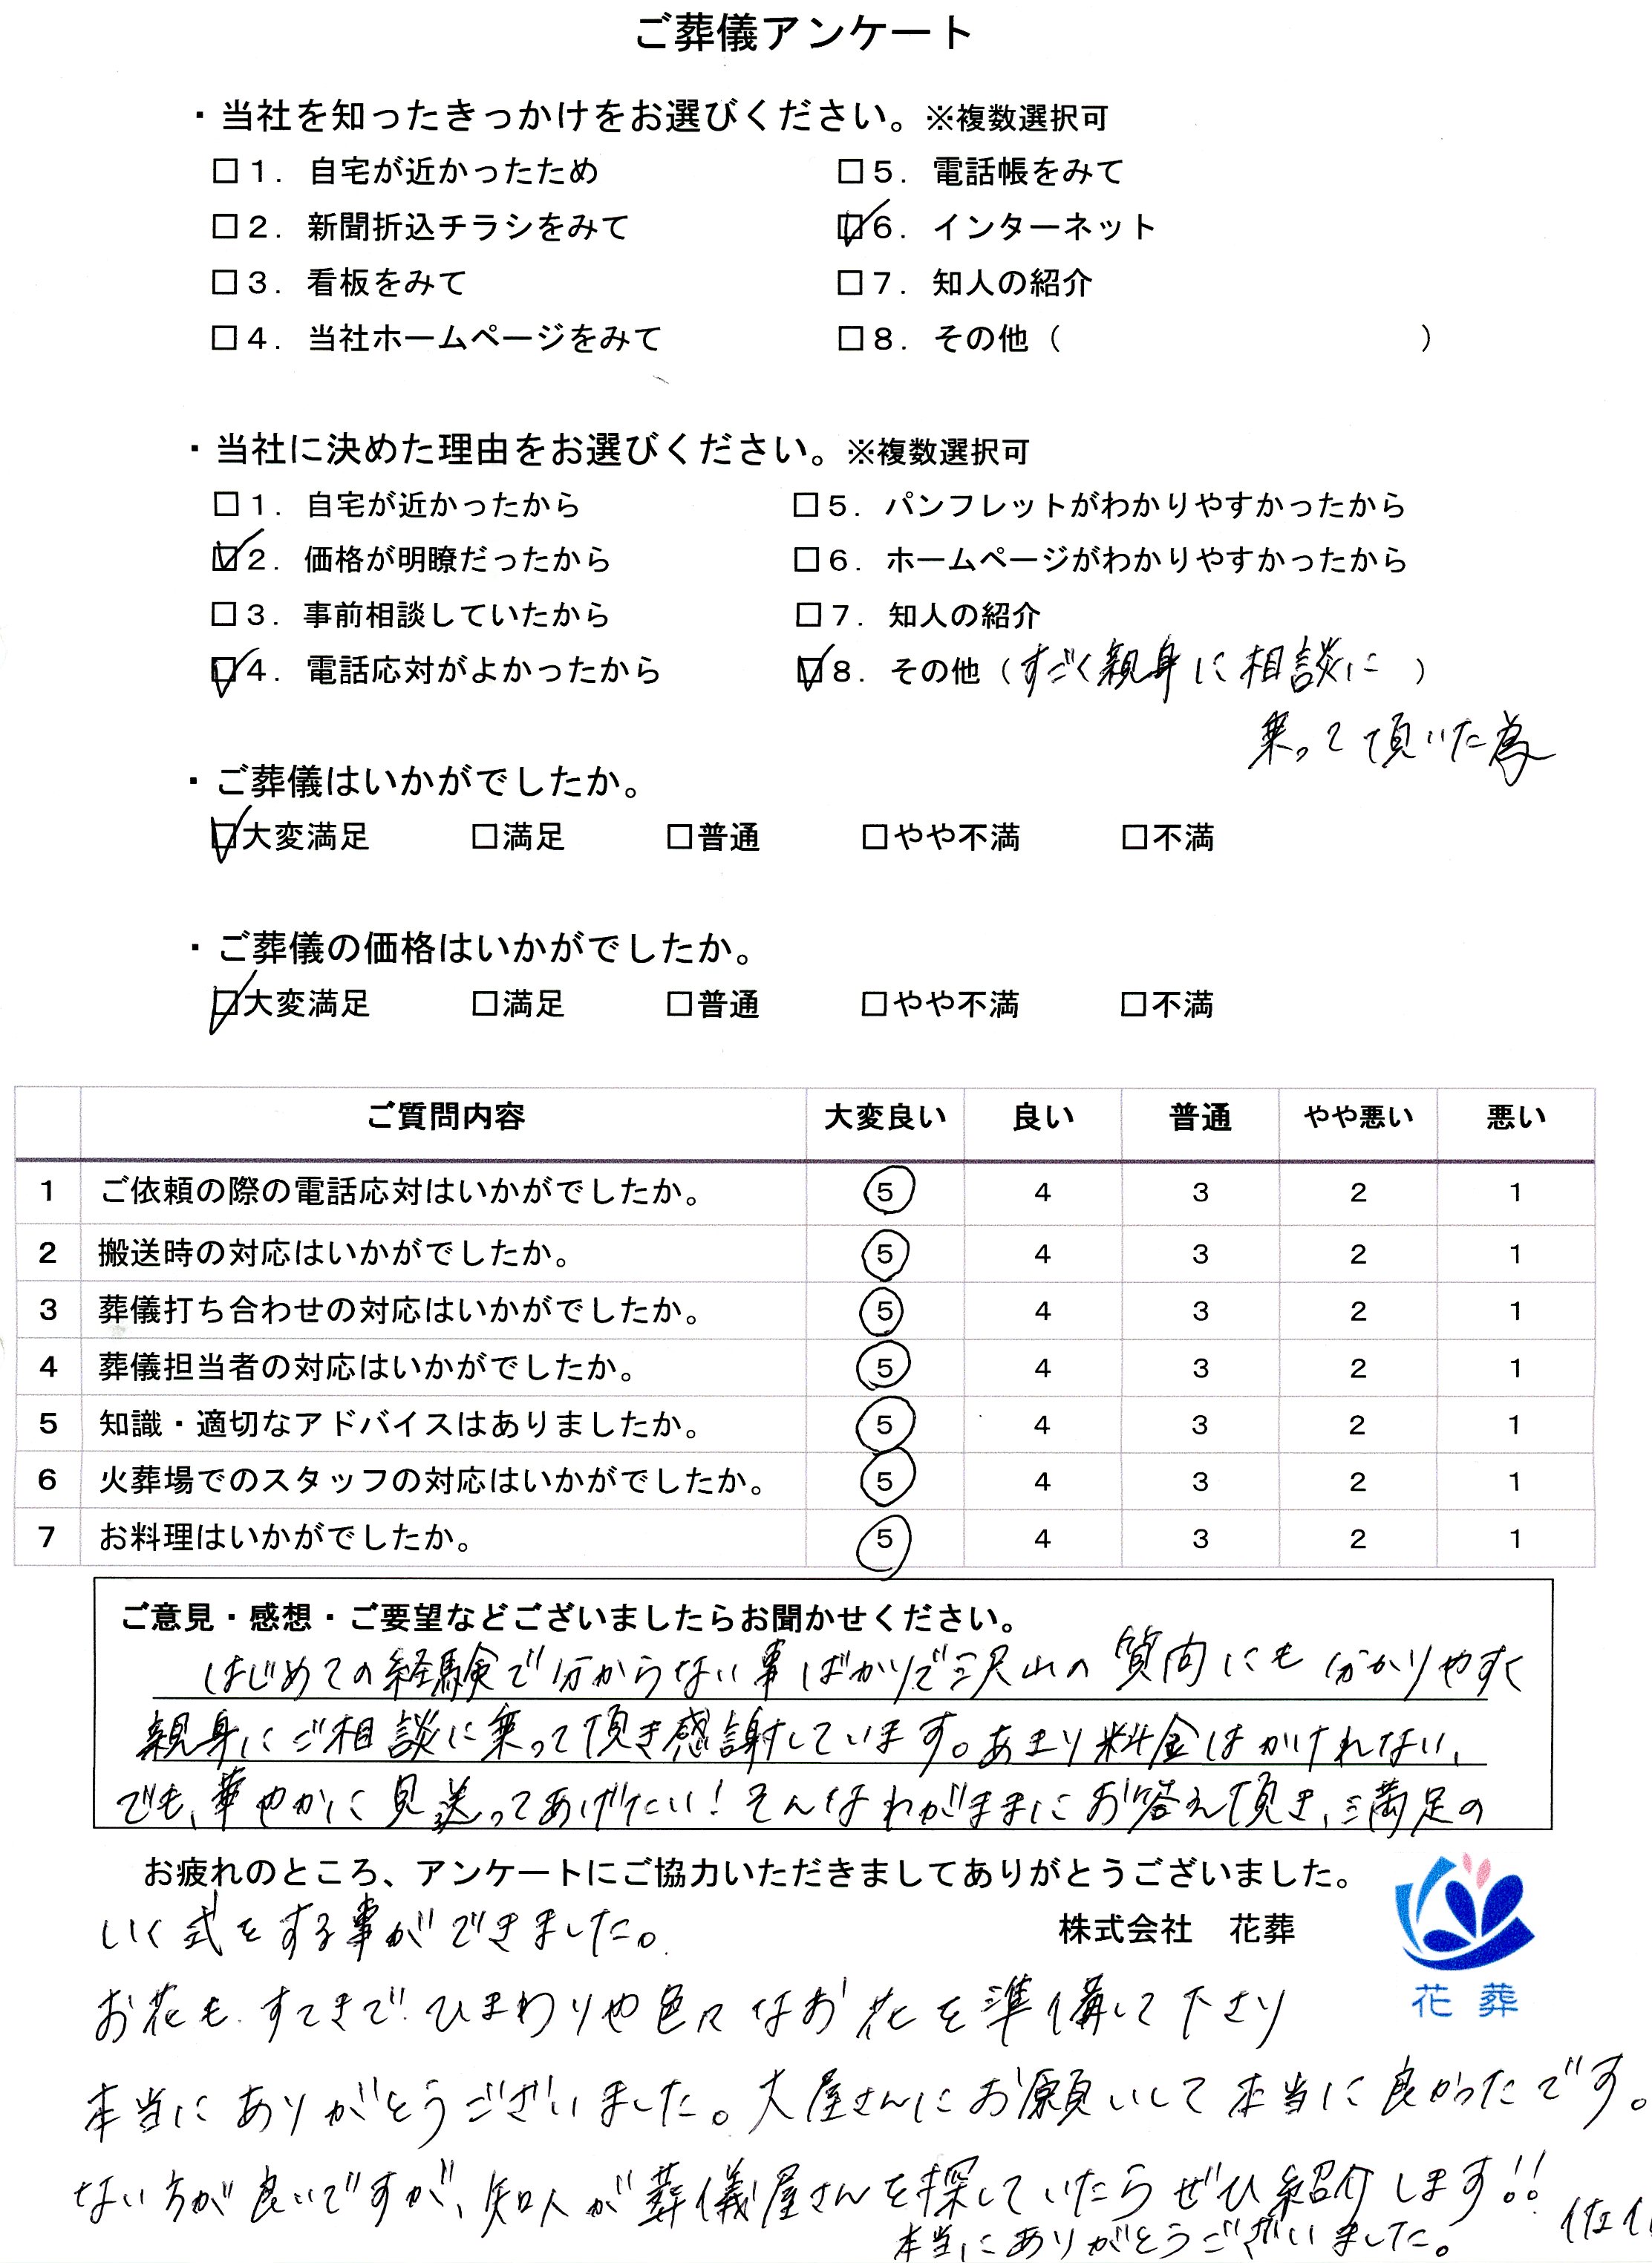 ご葬儀アンケート
・当社を知ったきっかけをお選びください。※複数選択可
□1. 自宅が近かったため □5. 電話帳をみて
□2. 新聞折込チラシをみて ☑6. インターネット
□3. 看板をみて □7. 知人の紹介
□4. 当社ホームページをみて □8. その他（ ）
・当社に決めた理由をお選びください。※複数選択可
□1. 自宅が近かったから □5. パンフレットがわかりやすかったから
☑2. 価格が明瞭だったから □6. ホームページがわかりやすかったから
□3. 事前相談していたから □7. 知人の紹介
☑4. 電話応対がよかったから ☑8. その他（すごく親身に相談に ）
乗って頂いた為
・ご葬儀はいかがでしたか。
☑大変満足 □満足 □普通 □やや不満 □不満
・ご葬儀の価格はいかがでしたか。
☑大変満足 □満足 □普通 □やや不満 □不満
ご質問内容 大変良い 良い 普通 やや悪い 悪い
1 ご依頼の際の電話応対はいかがでしたか。 5 4 3 2 1
2 搬送時の対応はいかがでしたか。 5 4 3 2 1
3 葬儀打ち合わせの対応はいかがでしたか。 5 4 3 2 1
4 葬儀担当者の対応はいかがでしたか。 5 4 3 2 1
5 知識・適切なアドバイスはありましたか。 5 4 3 2 1
6 火葬場でのスタッフの対応はいかがでしたか。 5 4 3 2 1
7 お料理はいかがでしたか。 5 4 3 2 1
ご意見・感想・ご要望などございましたらお聞かせください。
はじめての経験で分からない事ばかりで沢山の質問にも分かりやすく
親身にご相談に乗って頂き感謝しています。あまり料金はかけれない、
でも、華やかに見送ってあげたい！そんなわがままにお答え頂き、ご満足の
お疲れのところ、アンケートにご協力いただきましてありがとうございました。
いく式をする事ができました。
株式会社 花葬
花葬
お花も、すてきで ひまわりや色々なお花を準備して下さり
本当にありがとうございました。大屋さんにお願いして本当に良かったです。
ない方が良いですが、知人が葬儀屋さんを探していたらぜひ紹介します!!
本当にありがとうございました。